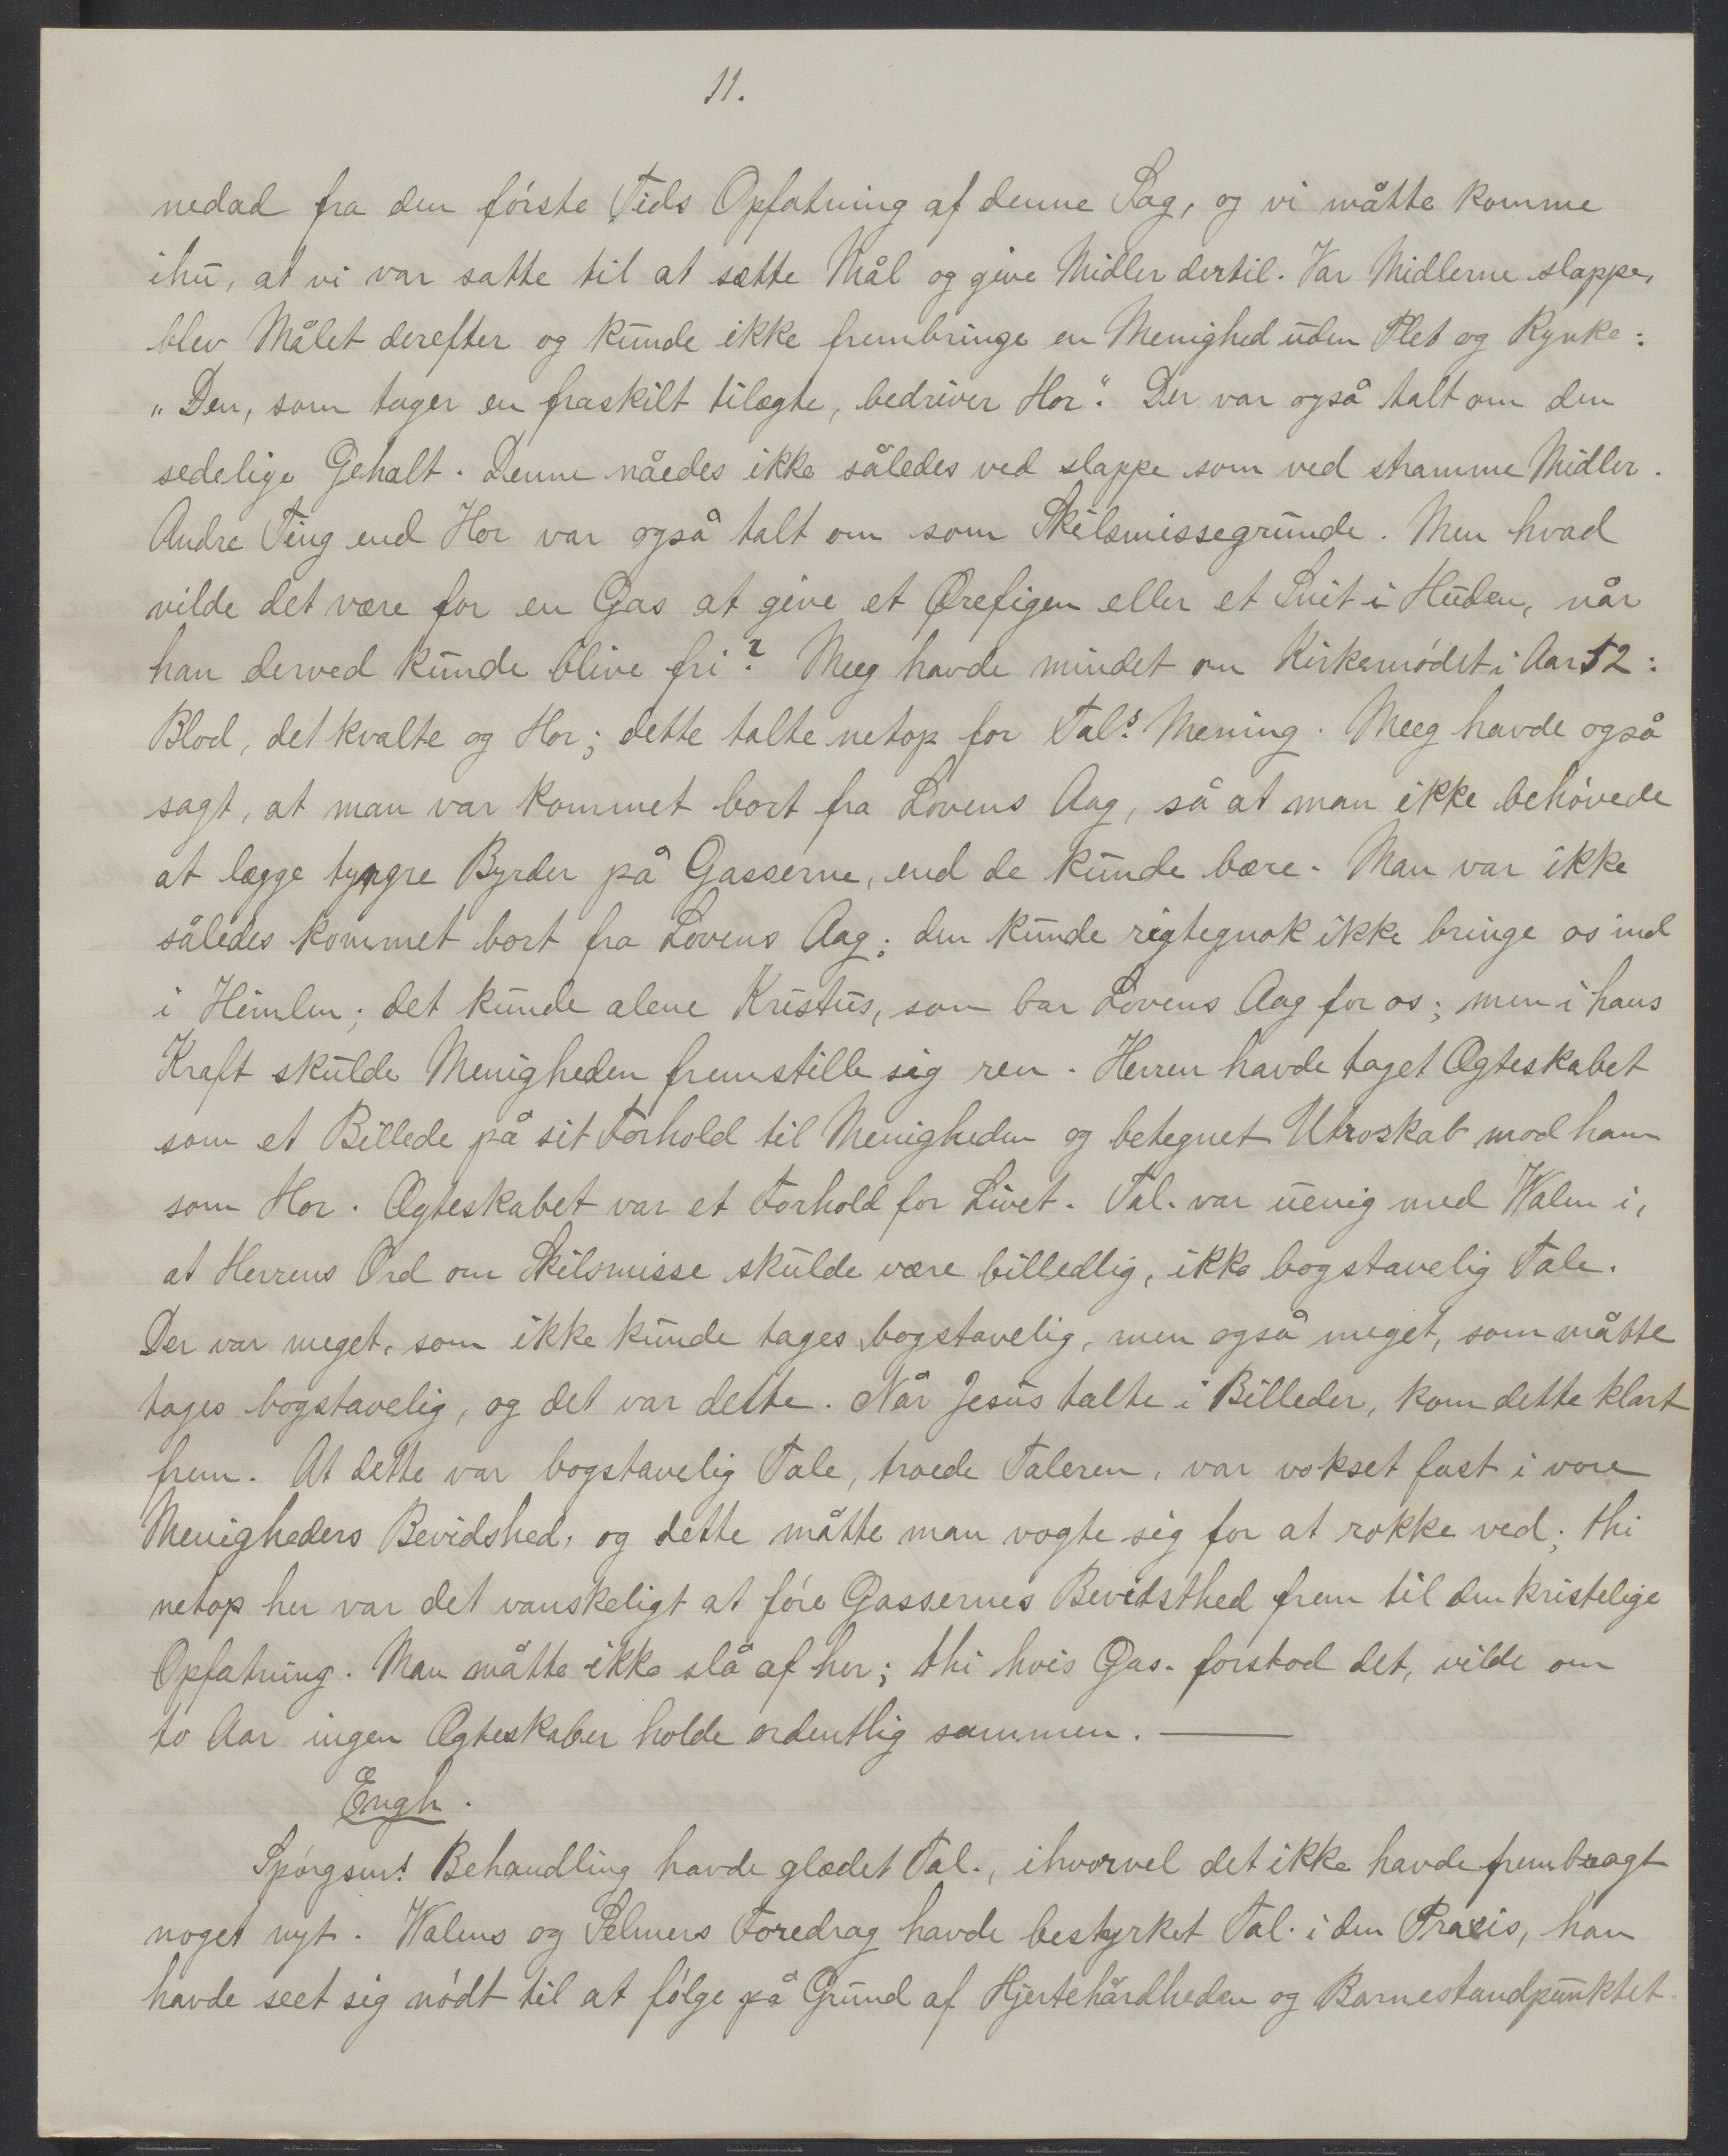 11.
nedad fra den første Tids Opfatning af denne Sag, og vi måtte komme
ihu, at vi var satte til at sætte Mål og give Midler dertil. Var Midlerne slappe,
blev Målet derefter og kunde ikke frembringe en Menighed uden Plet og Rynke:
„Den, som tager en fraskilt tilægte, bedriver Hor." Der var også talt om den
sedelige Gehalt. Denne nåedes ikke således ved slappe som ved stramme Midler.
Andre Ting end Hor var også talt om som Skilsmissegrunde. Men hvad
vilde det være for en Gas at give et Ørefigen eller et Snit i Huden, når
han derved kunde blive fri? Meeg havde mindet om Kirkemødet i Aar 52:
Blod, det kvalte og Hor; dette talte netop for Tal.s Mening. Meeg havde også
sagt, at man var kommet bort fra Lovens Aag, så at man ikke behøvede
at lægge tyngre Byrder på Gasserne, end de kunde bære. Man var ikke
således kommet bort fra Lovens Aag; den kunde rigtegnok ikke bringe os ind
i Himlen; det kunde alene Kristus, som bar Lovens Aag for os; men i hans
Kraft skulde Menigheden fremstille sig ren. Herren havde taget Ægteskabet
som et Billede på sit Forhold til Menigheden og betegnet Utroskab mod ham
som Hor. Ægteskabet var et Forhold for Livet. Tal. var uenig med Walen i,
at Herrens Ord om Skilsmisse skulde være billedlig, ikke bogstavelig Tale.
Der var meget, som ikke kunde tages bogstavelig, men også meget, som måtte
tages bogstavelig, og det var dette. Når Jesus talte i Billeder, kom dette klart
frem. At dette var bogstavelig Tale, troede Taleren, var vokset fast i vore
Menigheders Bevidshed, og dette måtte man vogte sig for at rokke ved; thi
netop her var det vanskeligt at føre Gassernes Bevidsthed frem til den kristelige
Opfatning. Man måtte ikke slå af her; thi hvis Gas. forstod det, vilde om
to Aar ingen Ægteskaber holde ordentlig sammen. —
Engh.
Spørgsm.s Behandling havde glædet Tal., ihvorvel det ikke havde frembragt
noget nyt. Walens og Selmers Foredrag havde bestyrket Tal. i den Praxis, han
havde seet sig nødt til at følge på Grund af Hjertehårdheden og Barnestandpunktet.